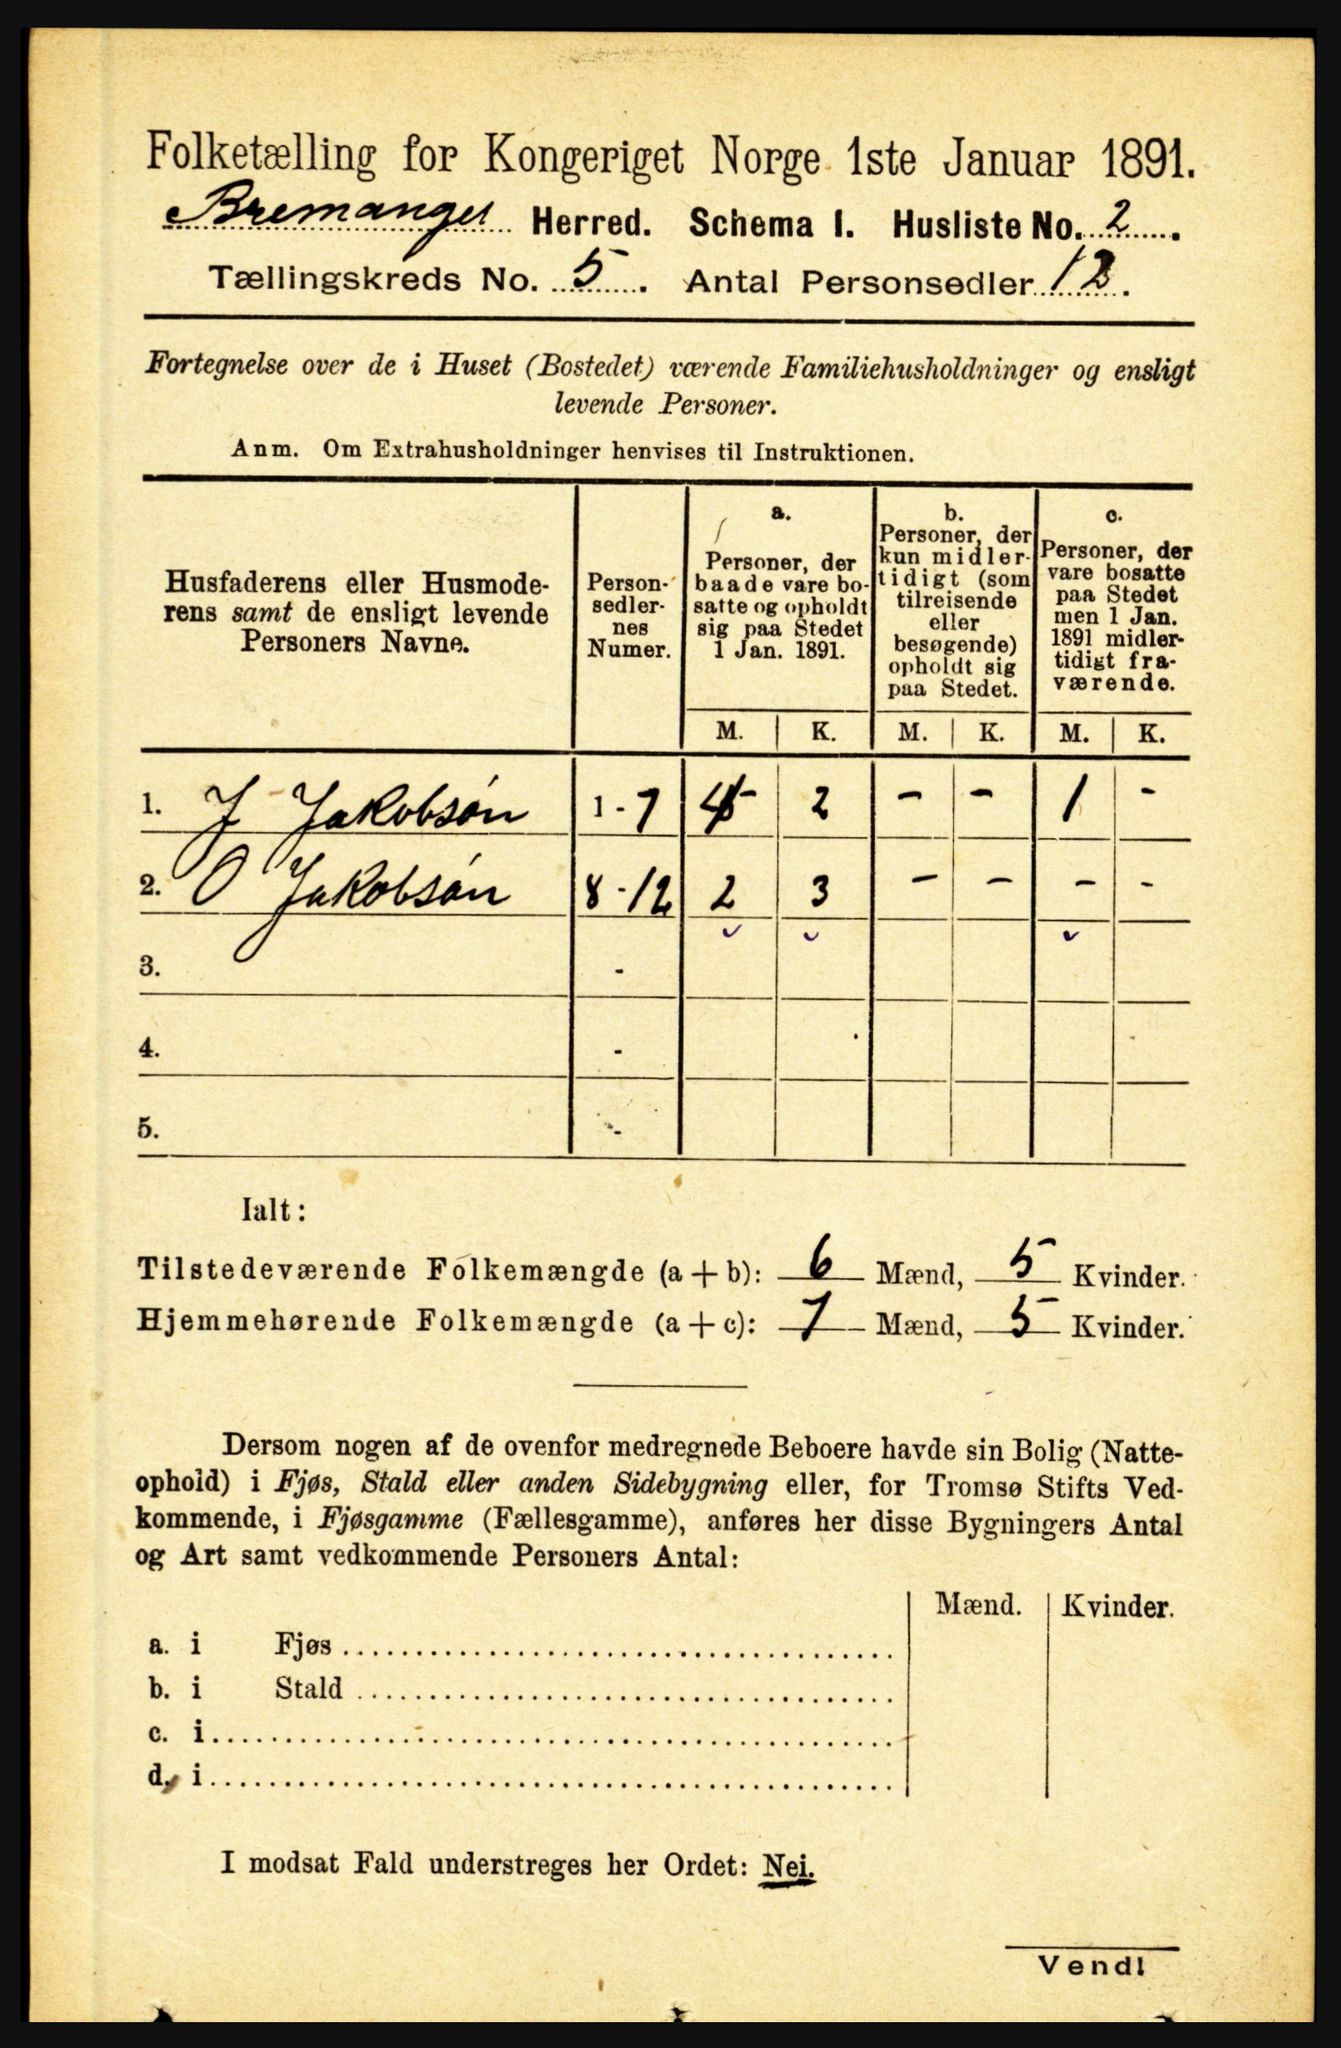 Folketælling for Kongeriget Norge 1ste Januar 1891.
Bremanger Herred. Schema I. Husliste No. 2.
Tællingskreds No. 5. Antal Personsedler 12.
Fortegnelse over de i Huset (Bostedet) værende Familiehusholdninger og ensligt
levende Personer.
Anm. Om Extrahusholdninger henvises til Instruktionen.
Husfaderens eller Husmode-
rens samt de ensligt levende
Personers Navne.
Person-
sedler-
nes
Numer.
a.
Personer, der
baade vare bo-
satte og opholdt
sig paa Stedet
1 Jan. 1891.
b.
Personer, der
kun midler-
tidigt (som
tilreisende
eller
besøgende)
opholdt sig
paa Stedet.
c.
Personer, der
vare bosatte
paa Stedet
men 1 Jan.
1891 midler-
tidigt fra-
værende.
M. K. M. K. M. K.
1. J Jakobsøn 1 - 7 4 2 - - 1 -
2. O Jakobsøn 8 - 12 2 3 - - - -
3. -
4. -
5. -
Ialt:
Tilstedeværende Folkemængde (a + b): 6 Mænd, 5 Kvinder.
Hjemmehørende Folkemængde (a + c): 7 Mænd, 5 Kvinder.
Dersom nogen af de ovenfor medregnede Beboere havde sin Bolig (Natte-
ophold) i Fjøs, Stald eller anden Sidebygning eller, for Tromsø Stifts Ved-
kommende, i Fjøsgamme (Fællesgamme), anføres her disse Bygningers Antal
og Art samt vedkommende Personers Antal:
Mænd. Kvinder.
a. i Fjøs
b. i Stald
c. i
d. i
I modsat Fald understreges her Ordet: Nei.
Vend!